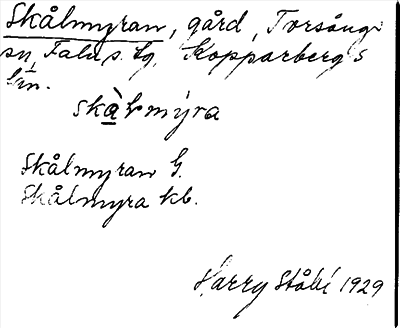 Skålmyran, gård, Torsångs
sn, Falu s. lg, Kopparbergs
län.
skàlmýra
Skålmyran G.
Skålmyra kb.
Harry Ståhl 1929